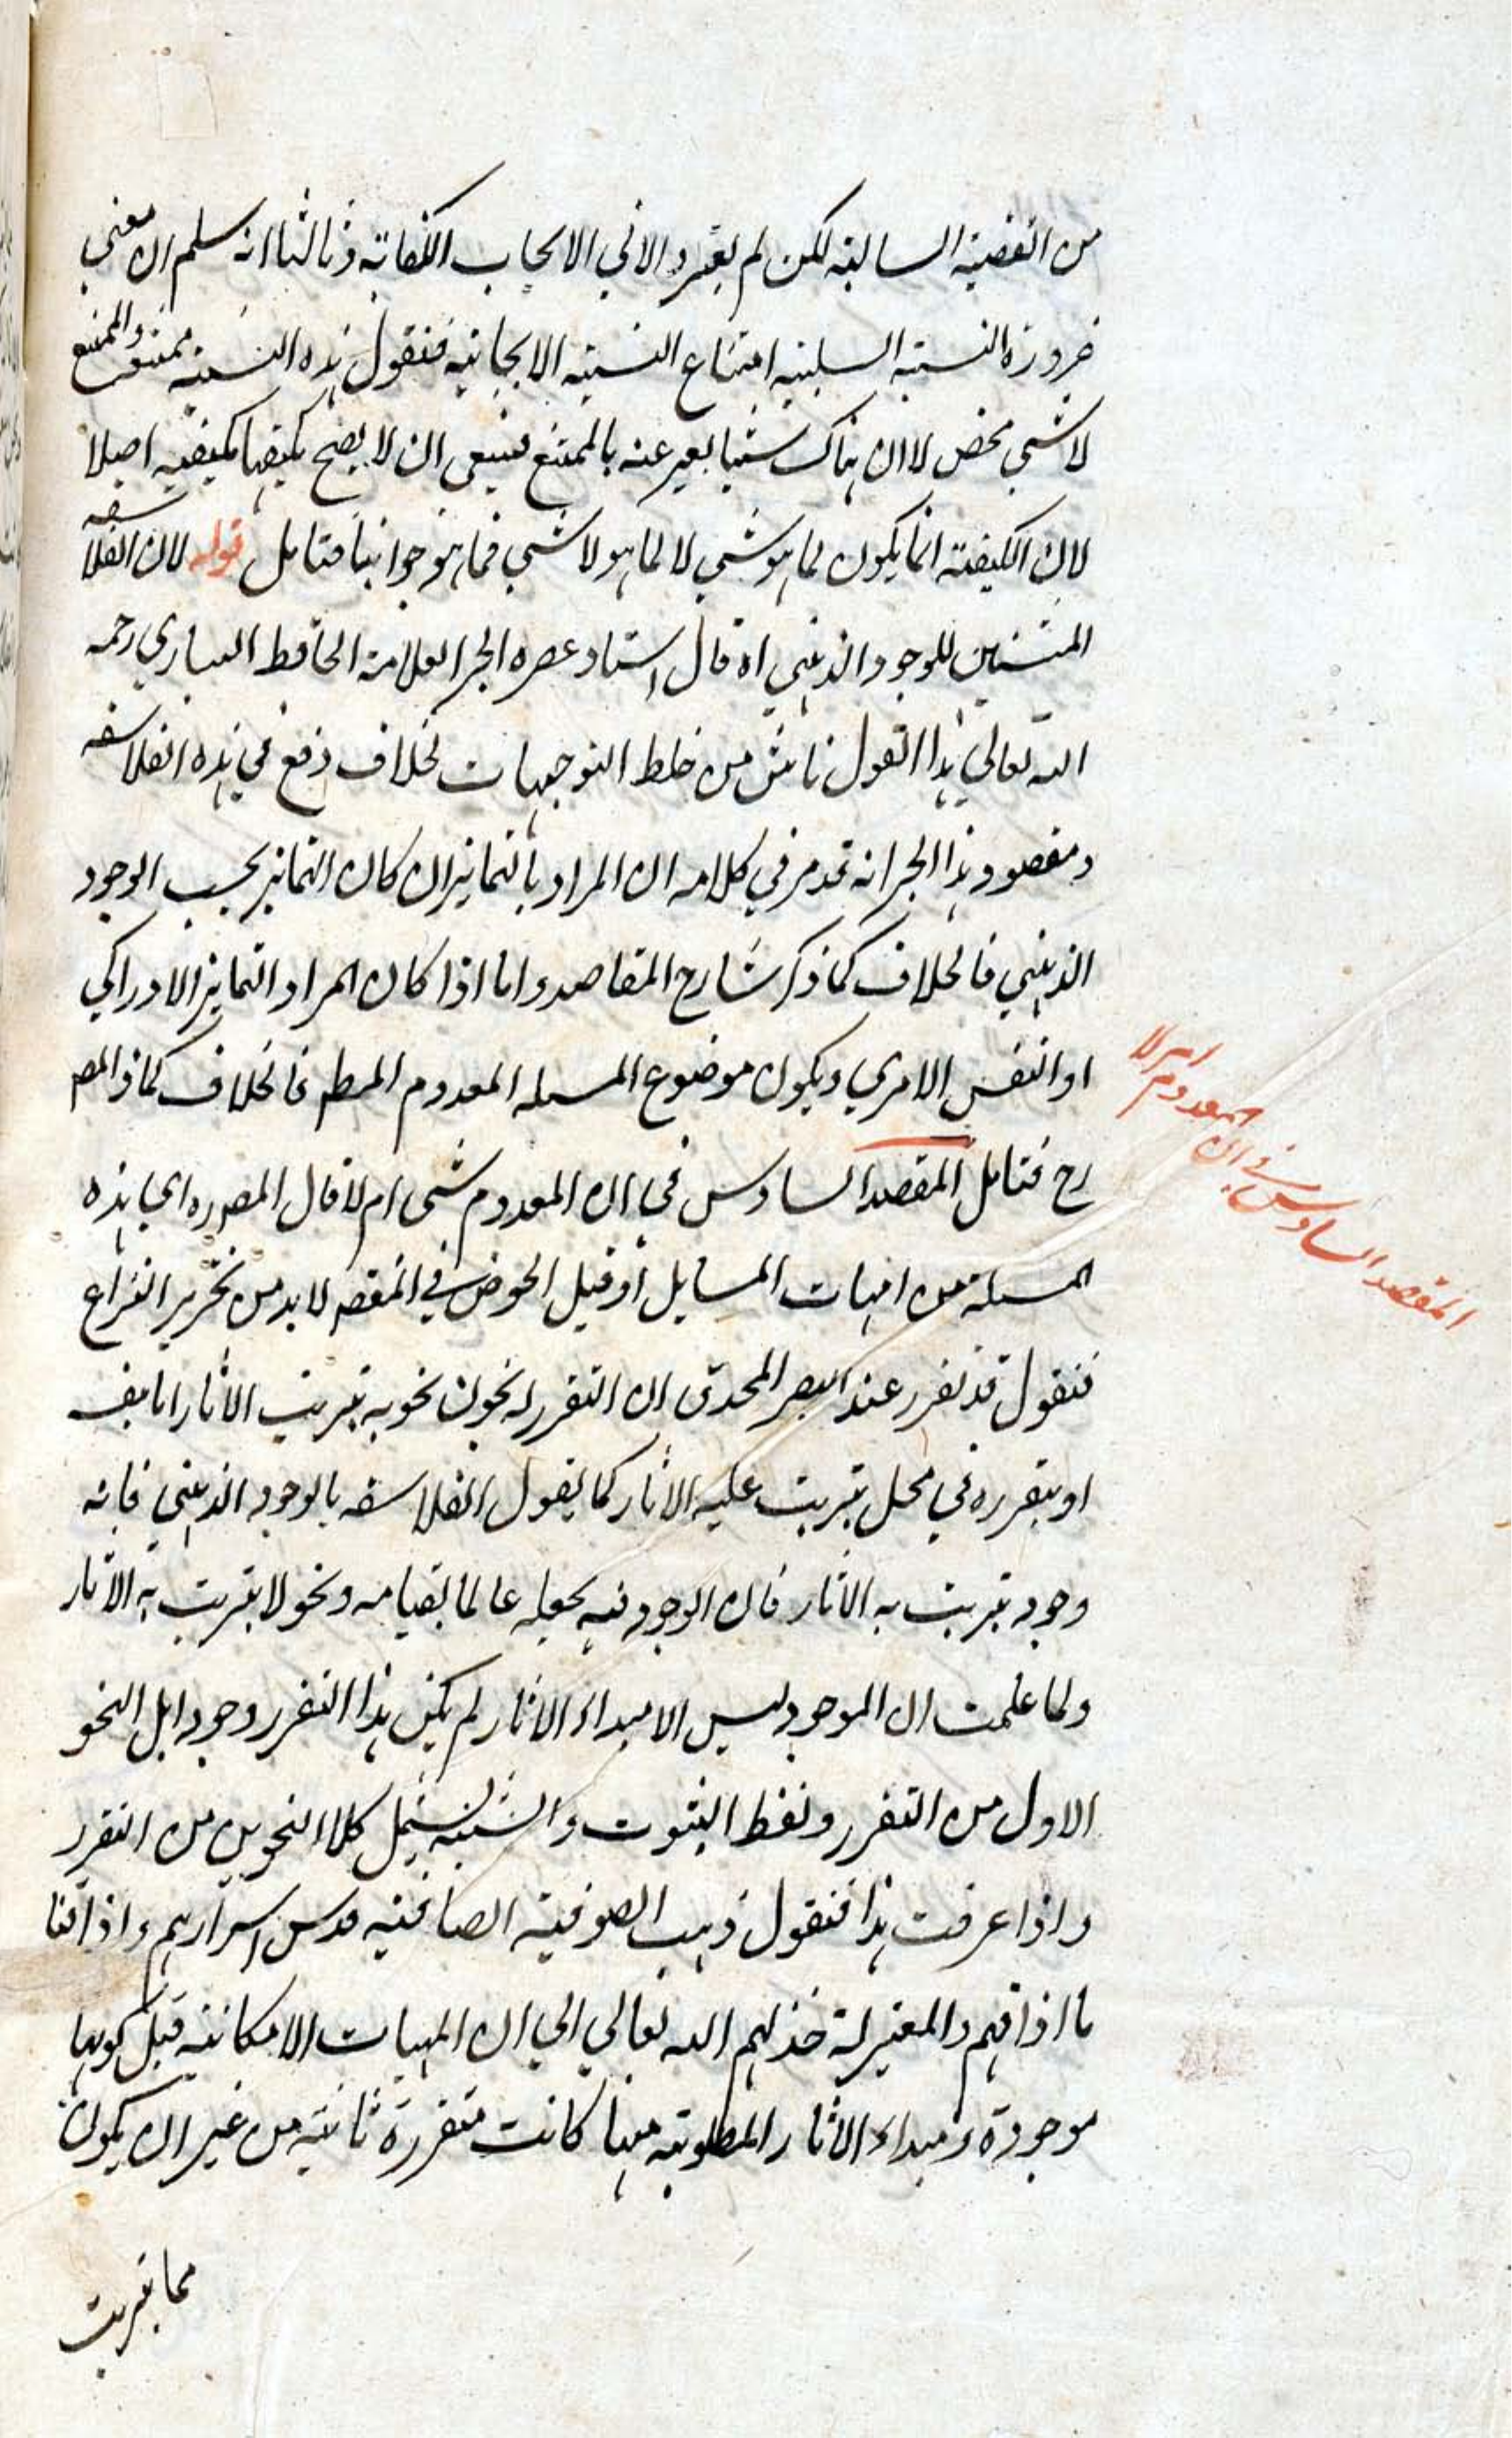 من القضية السالبة لكن لم يعتبروا الا في الايجاب اكتفاء به وثالثا انه سلم ان معنى
ضرورة النسبة السلبية امتناع النسبة الايجابية فنقول هذه النسبة ممتنعة والممتنع
لا شي محض لا ان هناك شيئا يعبر عنه بالممتنع فينبغي ان لا يصح تكيفها بكيفية اصلا
لان الكيفية انما يكون لما هو شي لا لما هو لا شي فما هو جوابنا فتامل قوله لان الفلاسفه
المثبتين للوجود الذهني اه قال استاد عصره الحبر العلامة الحافظ البنارسي رحمه
الله تعالى هذا القول ناش من خلط التوجيهات لخلاف وقع في هذه الفلاسفه
ومقصود هذا الحبر انه قد مر في كلامه ان المراد بالتمايز ان كان التمايز بحسب الوجود
الذهني فالخلاف كما ذكر شارح المقاصد واما اذا كان المراد التمايز الادراكي
او النفس الامري ويكون موضوع المسله المعدوم المط فالخلاف كما ذ المص
رح فتامل المقصد السادس في ان المعدوم شي ام لا قال المص ره اي هذه
المسلة من امهات المسايل اه قبل الخوض في المقص لا بد من تحرير النزاع
فنقول قد تقرر عند البصر المحدق ان التقرر له نحوان نحو به يترتب الاثار اما بنفسه
او بتقرره في محل يترتب عليه الاثار كما يقول الفلاسفه بالوجود الذهني فانه
وجود يترتب به الاثار فان الوجود فيه يجعله عالما بقيامه ونحو لا يترتب به الاثار
ولما علمت ان الموجود ليس الا مبداء الاثار لم يكن هذا التقرر وجودا بل النحو
الاول من التقرر ولفظ الثبوت والشيئية يشمل كلا النحوين من التقرر
واذا عرفت هذا فنقول ذهب الصوفية الصافية قدس اسرارهم واذاقنا
ما اذاقهم والمعتزلة خذلهم الله تعالى الى ان المهيات الامكانية قبل كونها
موجودة ومبداء الاثار المطلوبة منها كانت متقررة ثابتة من غير ان يكون
مما يترتب
المقصد السادس في ان المعدوم ام لا